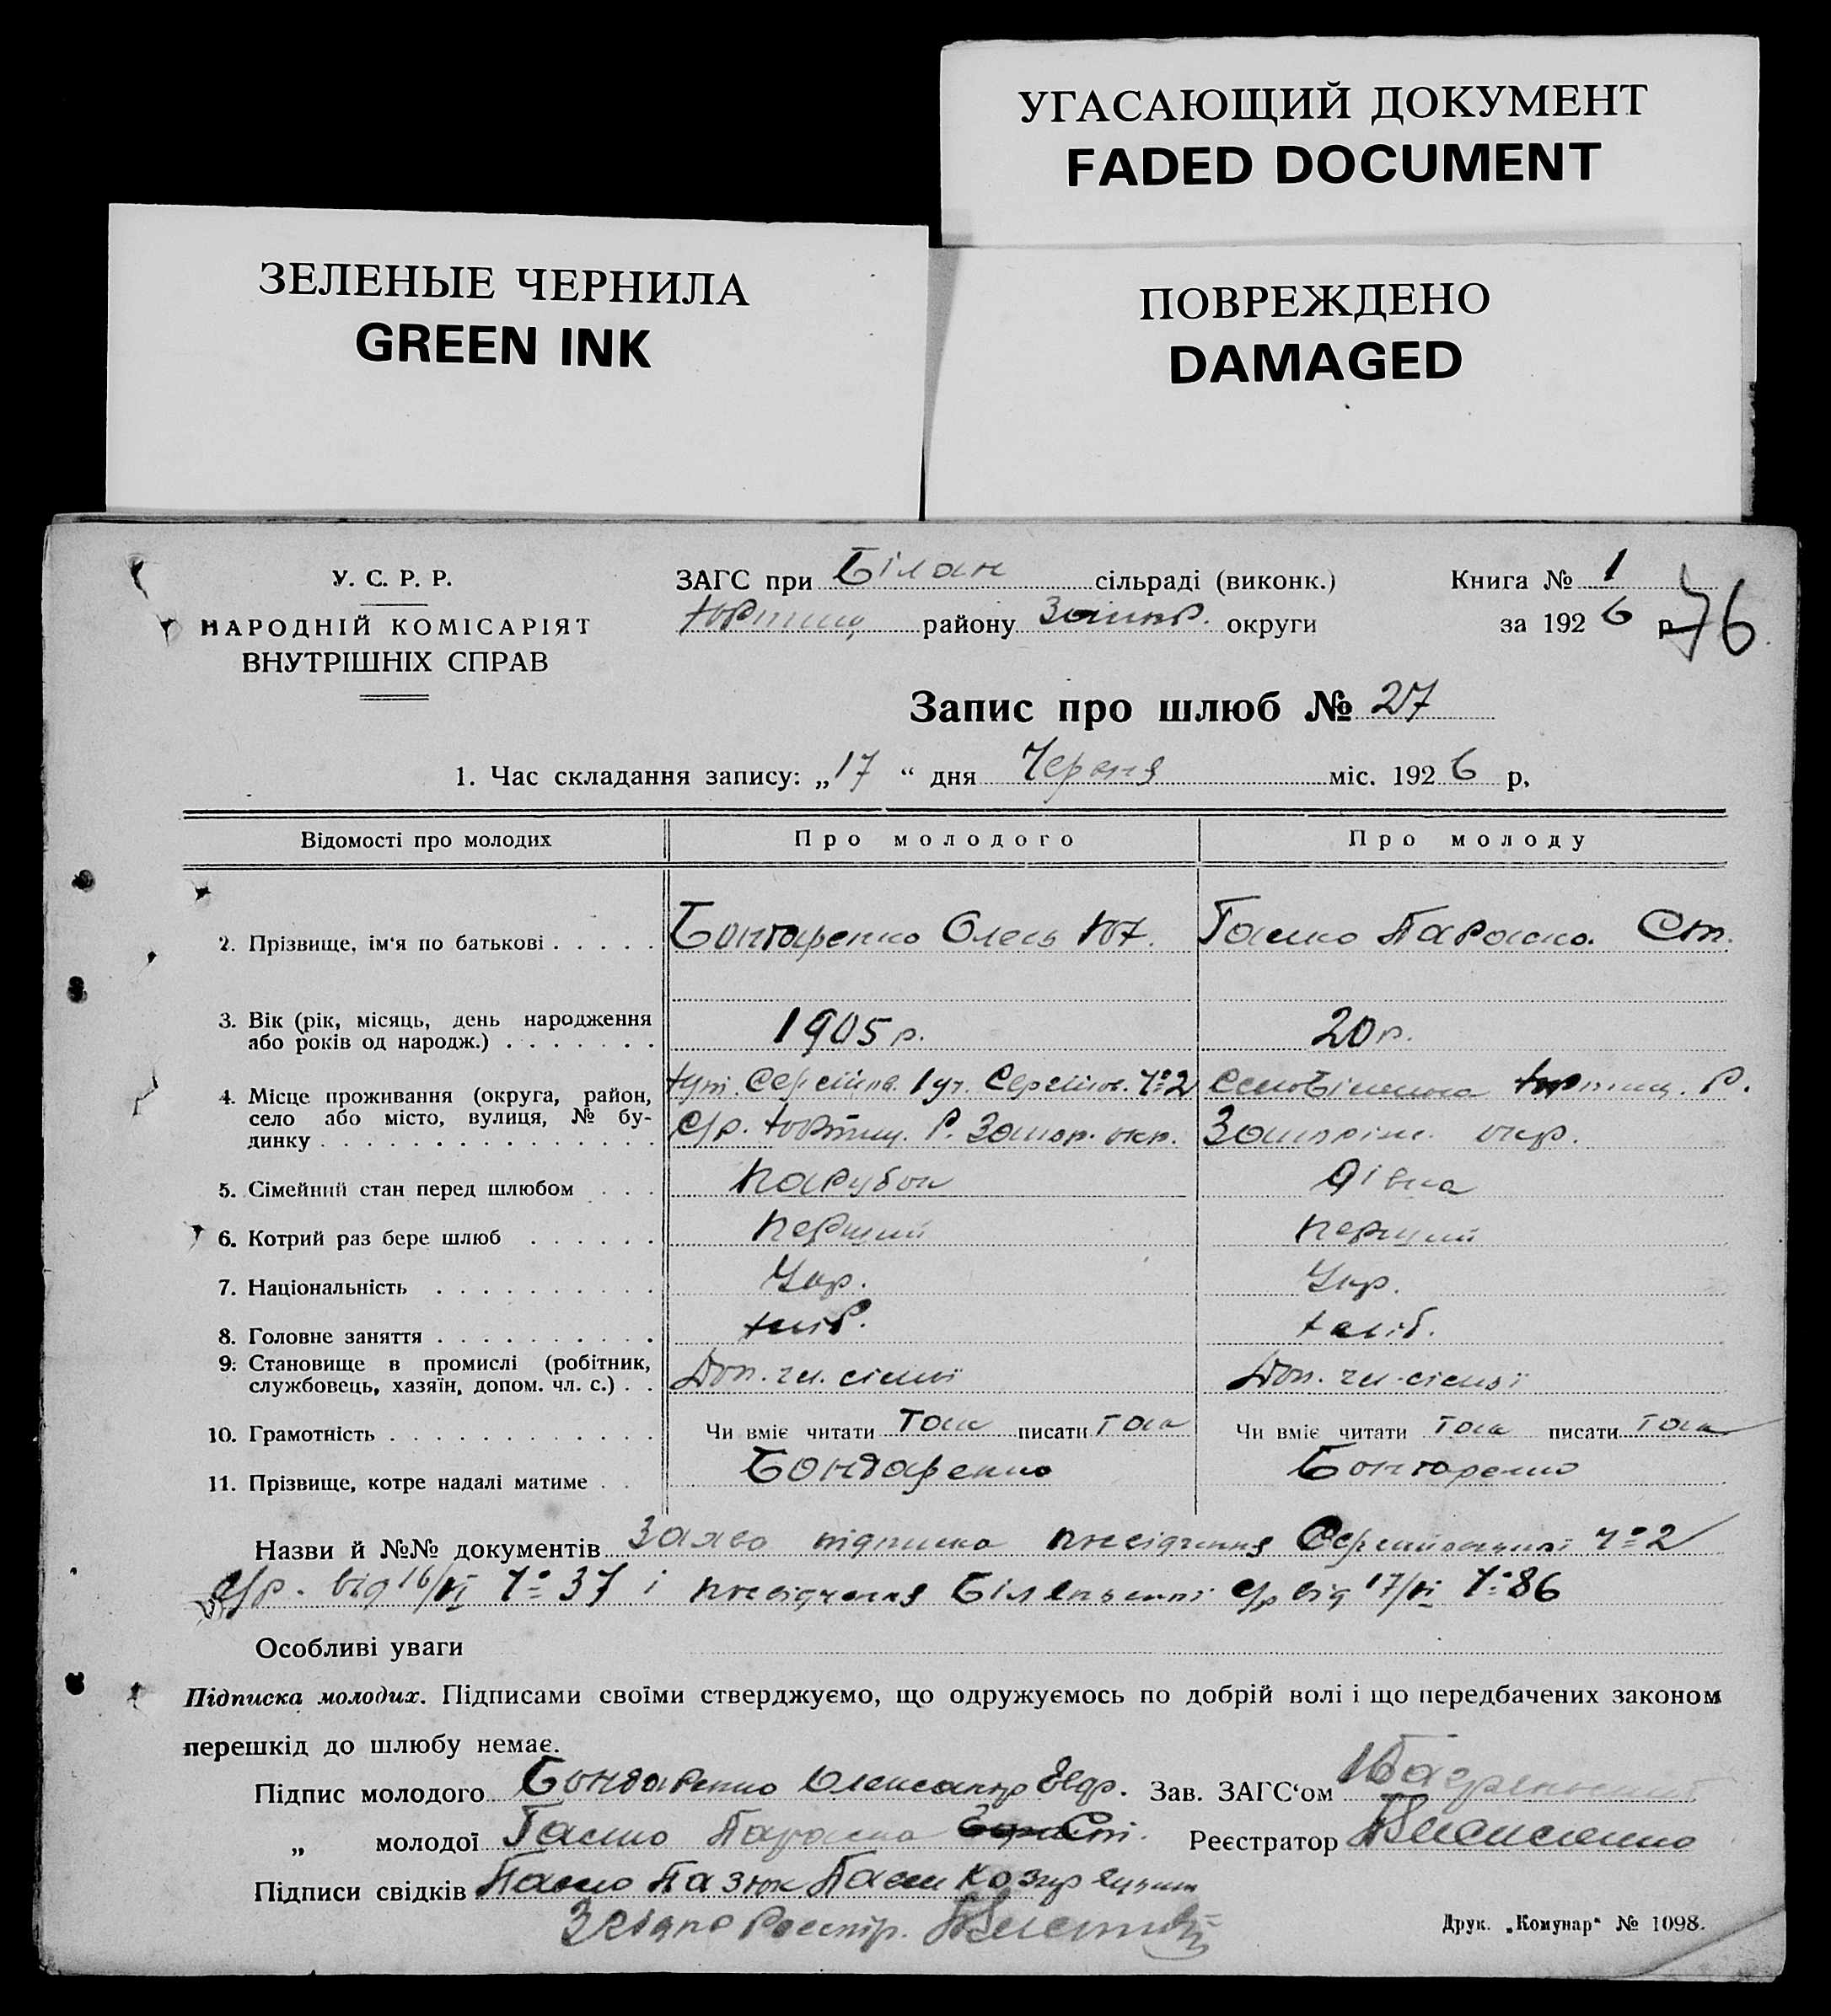 УГАСАЮЩИЙ ДОКУМЕНТ
FADED DOCUMENT
ЗЕЛЕНЫЕ ЧЕРНИЛА
GREEN INK
ПОВРЕЖДЕНО
DAMAGED
У. С. Р. Р.
НАРОДНІЙ КОМІСАРІЯТ
ВНУТРІШНІХ СПРАВ
ЗАГС при Білан сільраді (виконк.)
району Запор. округи
Книга № 1
за 1926 р.
76
Запис про шлюб № 27
1. Час складання запису: „17“ дня Червня міс. 1926 р,
Відомості про молодих Про молодого Про молоду
2. Прізвище, ім'я по батькові Бондаренко Олесь Гасло Параска Ст.
3. Вік (рік, місяць, день народження
або років од народж.) 1905 р. 20 р.
4. Місце проживання (округа, район,
село або місто, вулиця, № бу-
динку № 2 с/р. Р. Запор. окр. Р. Запоріж. окр.
5. Сімейний стан перед шлюбом Парубок Дівка
6. Котрий раз бере шлюб Перший Перший
7. Національність Укр. Укр.
8. Головне заняття хліб. хліб.
9. Становище в промислі (робітник,
службовець, хазяїн, допом. чл. с.) Доп. чл. сімьї Доп. чл. сімьї
10. Грамотність Чи вміє читати Так писати Так Чи вміє читати Так писати Так
11. Прізвище, котре надалі матиме Бондаренко Бондаренко
Назви й №№ документів Заява підписка посвідчення № 2
с/р. від 16/VI № 37 і посвідчення Біленьської с/р від 17/VI № 86
Особливі уваги
Підписка молодих. Підписами своїми стверджуємо, що одружуємось по добрій волі і що передбачених законом
перешкід до шлюбу немає.
Підпис молодого Бондаренко Олександр Зав. ЗАГС'ом
„ молодої Гасло Параска Ст. Реєстратор
Підписи свідків
Згідно Реєстр.
Друк. „Комунар“ № 1098.